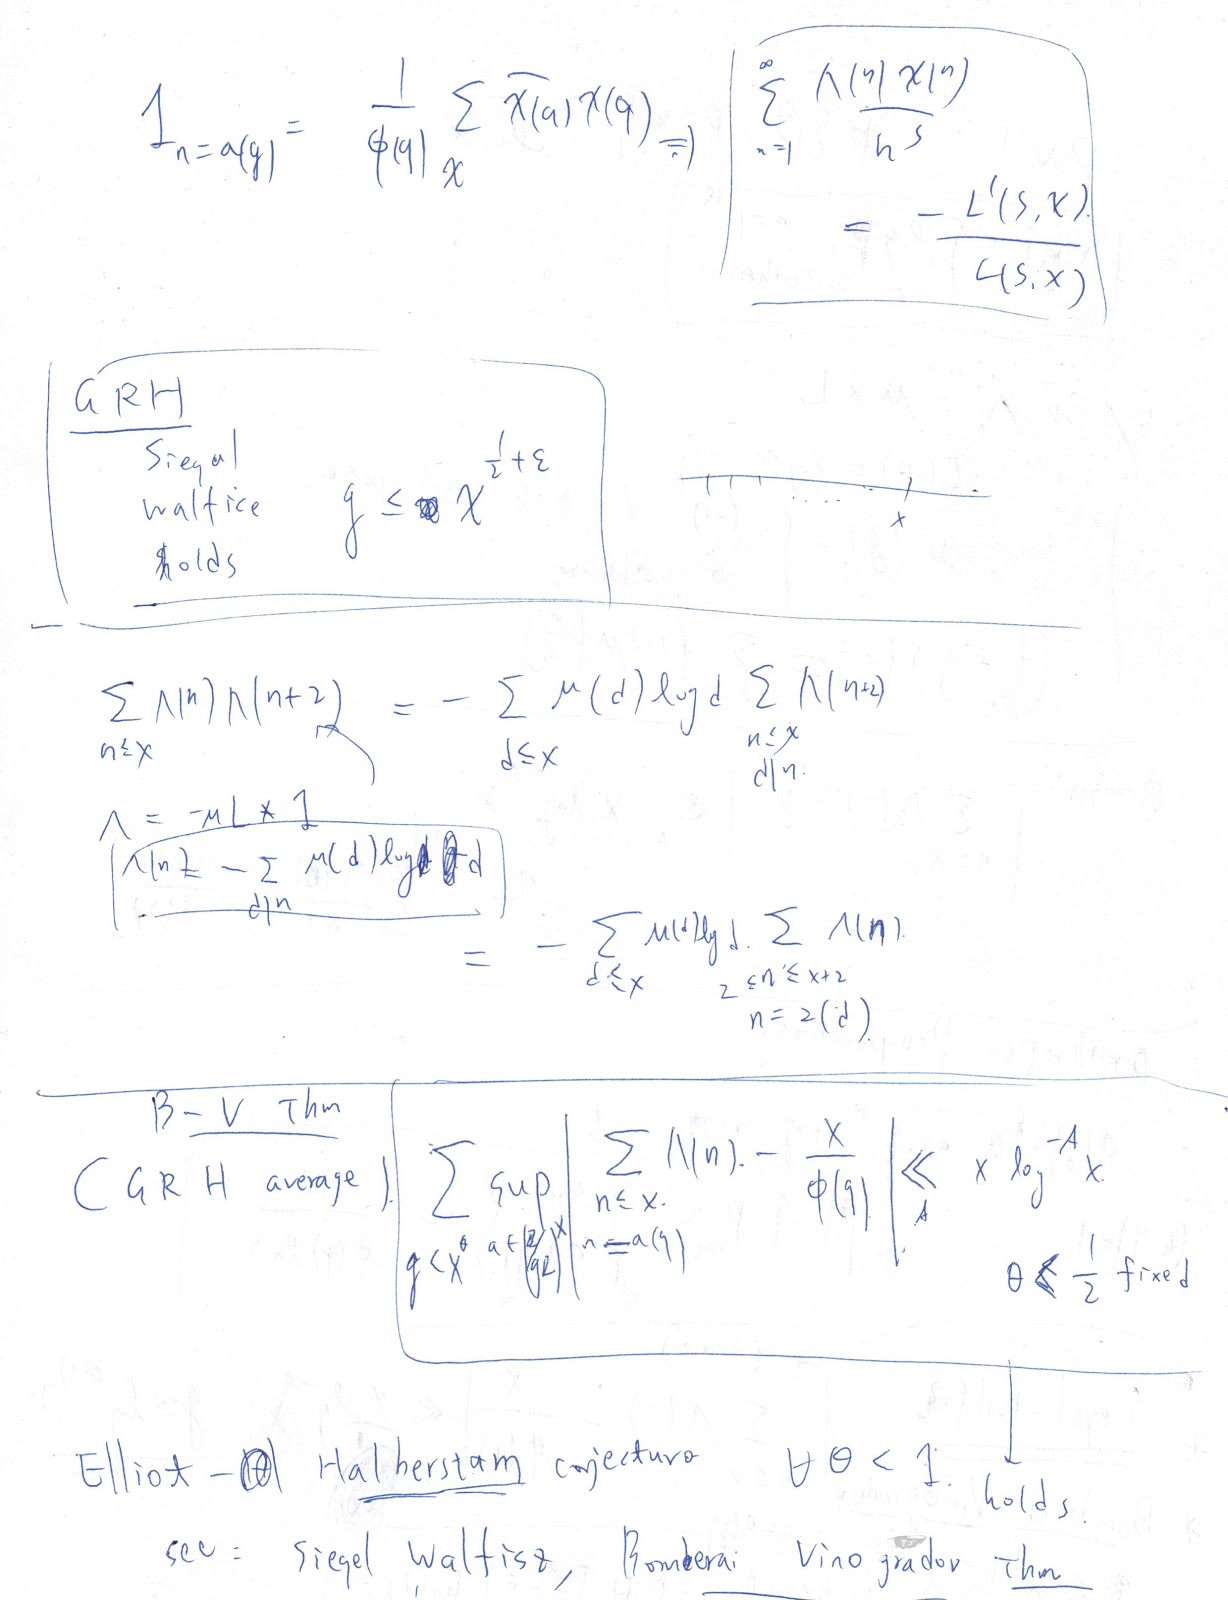 1_{n=a(q)} = \frac{1}{\phi(q)} \sum_{\chi} \overline{\chi}(a) \chi(q) =)
\sum_{n=1}^{\infty} \frac{\Lambda(n) \chi(n)}{n^s}
= - \frac{L'(s,\chi)}{L(s,\chi)}
GRH
Siegal
walfice q ≤ X^{\frac{1}{2}+ε}
holds
x
\sum_{n≤x} Λ(n)Λ(n+2) = - \sum_{d≤x} μ(d) log d \sum_{n≤x, d|n} Λ(n+2)
Λ = -μL * 1
Λ(n) = - \sum_{d|n} μ(d) log d
= - \sum_{d≤x} μ(d) log d . \sum_{2≤n≤x+2, n=2(d)} Λ(n).
B-V Thm
(GRH average).
\sum_{q<x^θ} sup_{a∈(Z/qZ)^×} | \sum_{n≤x, n≡a(q)} Λ(n). - \frac{x}{\phi(q)} | ≪_A x log^{-A} x.
θ < \frac{1}{2} fixed
Elliot - Halberstam conjecture ∀ θ < 1. holds.
see: Siegel Walfisz, Bomberai Vinogradov Thm